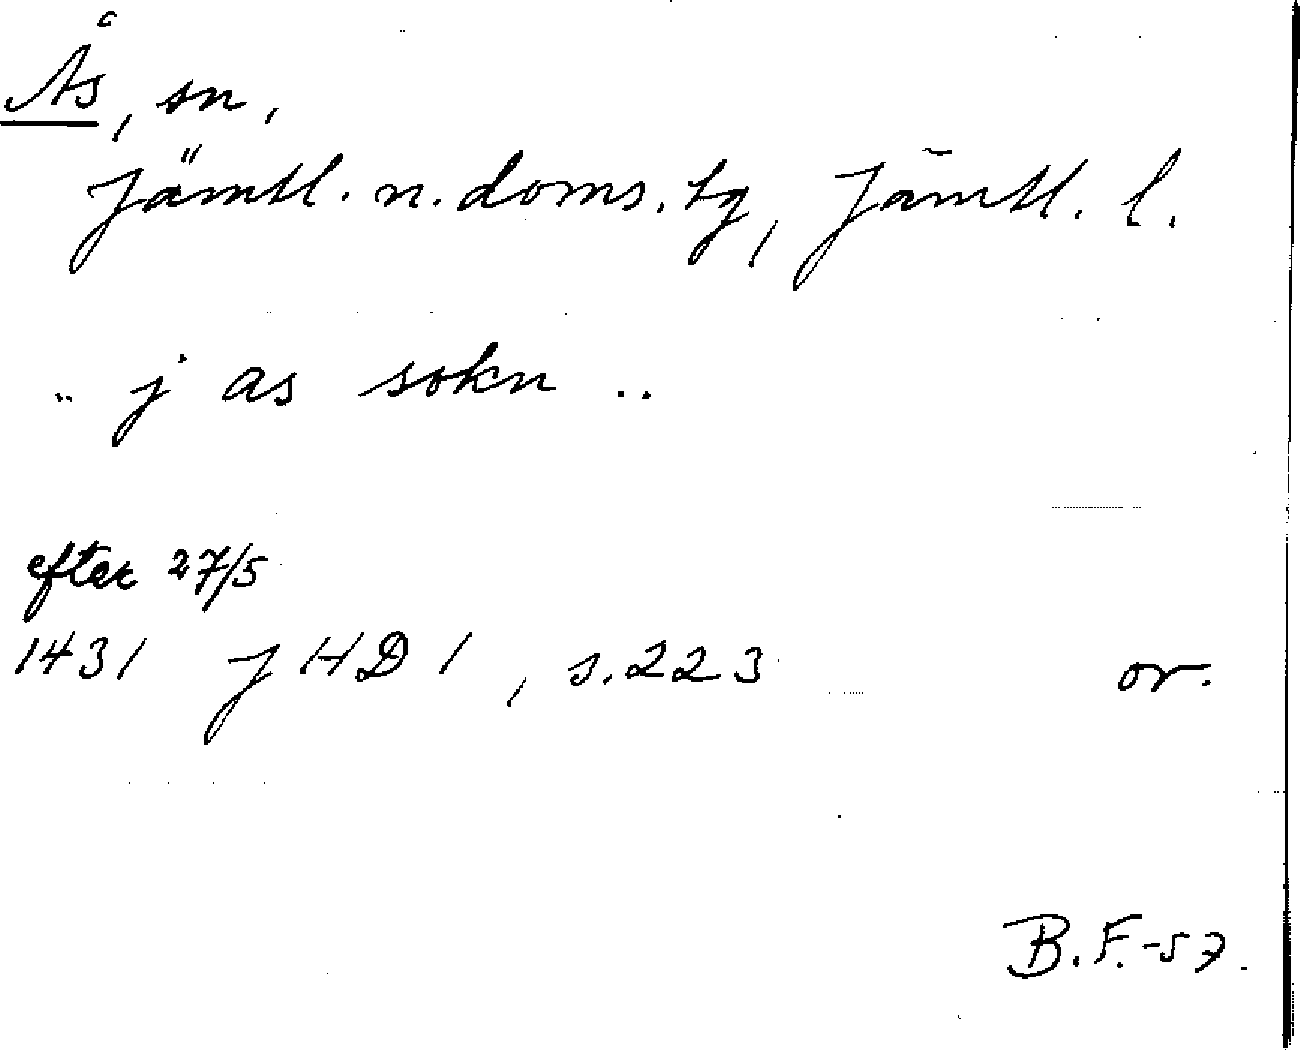 Ås, sn,
Jämtl. n. doms. tg, Jämtl. l.
.. j as sokn ..
efter 27/5
1431 JHD 1, s. 223 or.
B. F. -57.